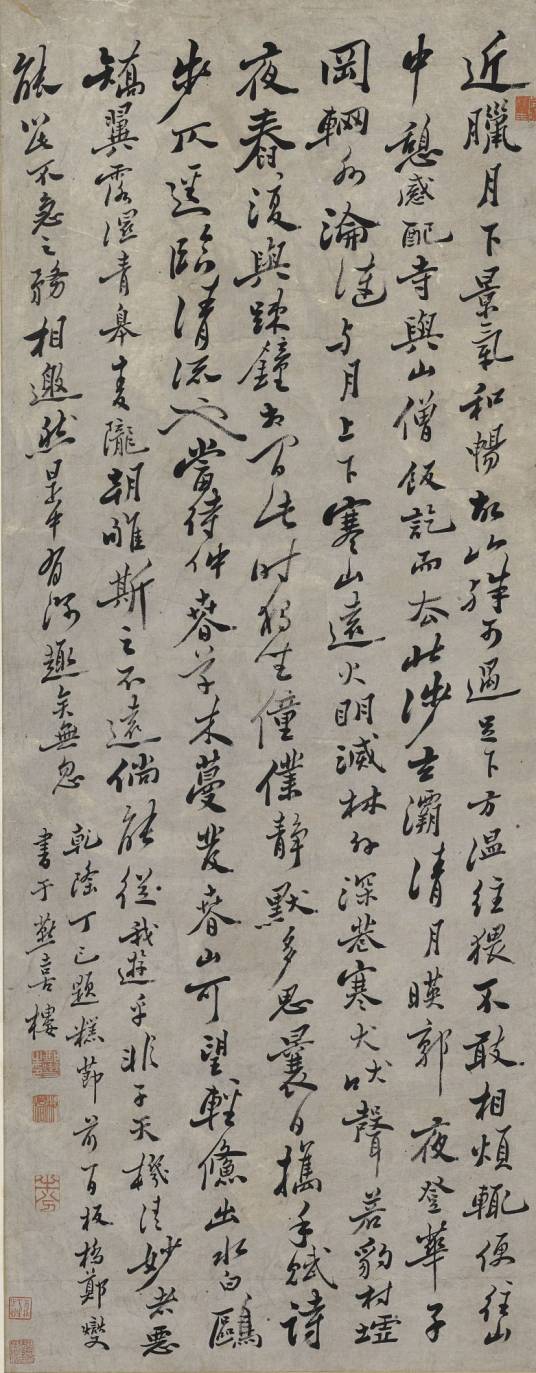 近臘月下景氣和暢故山殊可過足下方溫經猥不敢相煩輒便往山
中憩感配寺與山僧飯訖而去北涉玄灞清月暎郭夜登華子
岡輞水淪漣与月上下寒山遠火明滅林外深巷寒犬吠聲若豹村墟
夜舂復與踈鐘相間此時獨坐僮僕靜默多思曩日攜手賦詩
步仄逕臨清流也當待仲春草木蔓發春山可望輕鯈出水白鷗
矯翼露濕青皋麥隴朝雊斯之不遠倘能從我遊乎非子天機清妙者惡
能以此不急之務相邀然是中有深趣矣無忽
乾隆丁巳題糕節前一日板橋鄭燮
書于燕喜樓